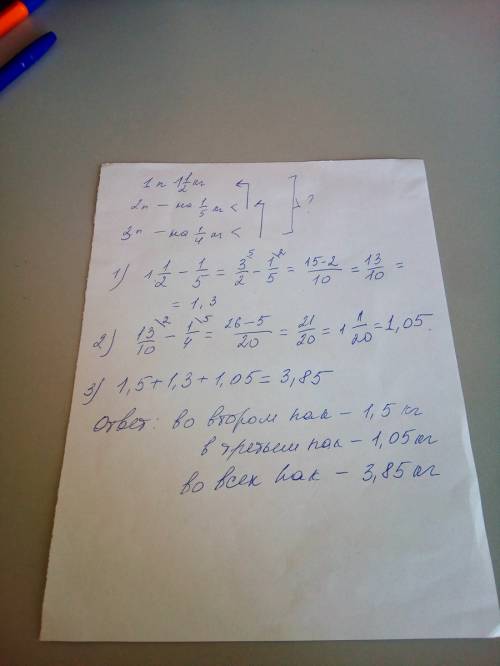 1п 1 1/2 кг
2п – на 1/5 кг <
3п – на 1/4 кг < ?
1) 1 1/2 - 1/5 = 3/2 - 1/5 = 15-2/10 = 13/10 =
= 1,3
2) 13/10 - 1/4 = 26-5/20 = 21/20 = 1 1/20 = 1,05.
3) 1,5+1,3+1,05=3,85
Ответ: во втором пак – 1,5 кг
в третьем пак – 1,05кг
во всех пак – 3,85 кг